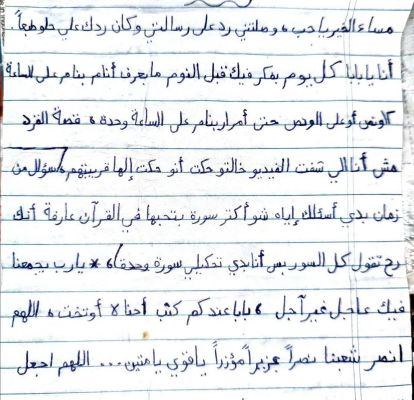 مساء الخير يا حب، وصلتني رد على رسالتي وكان ردك علي حلو طبعاً.
أنا يا بابا كل يوم بفكر فيك قبل النوم ما بعرف أنام بنام على الساعة
كاونص أو على الونص حتى أمرار بنام على الساعة وحدة، قصة القرد
مش أنا الي شفت الفيديو خالتو حكت أنو حكت إلها قريبتهم / سؤال من
زمان بدي أسئلك إياه شو أكتر سورة بتحبها في القرآن عارفة أنك
رح تقول كل السور بس أنا بدي تحكيلي سورة وحدة / * يارب يجمعنا
فيك عاجل غير آجل، بابا عندكم كتب أحنا لا أو تخت، اللهم
انصر شعبنا نصراً عزيزاً مؤزراً يا قوي يا متين... اللهم اجعل